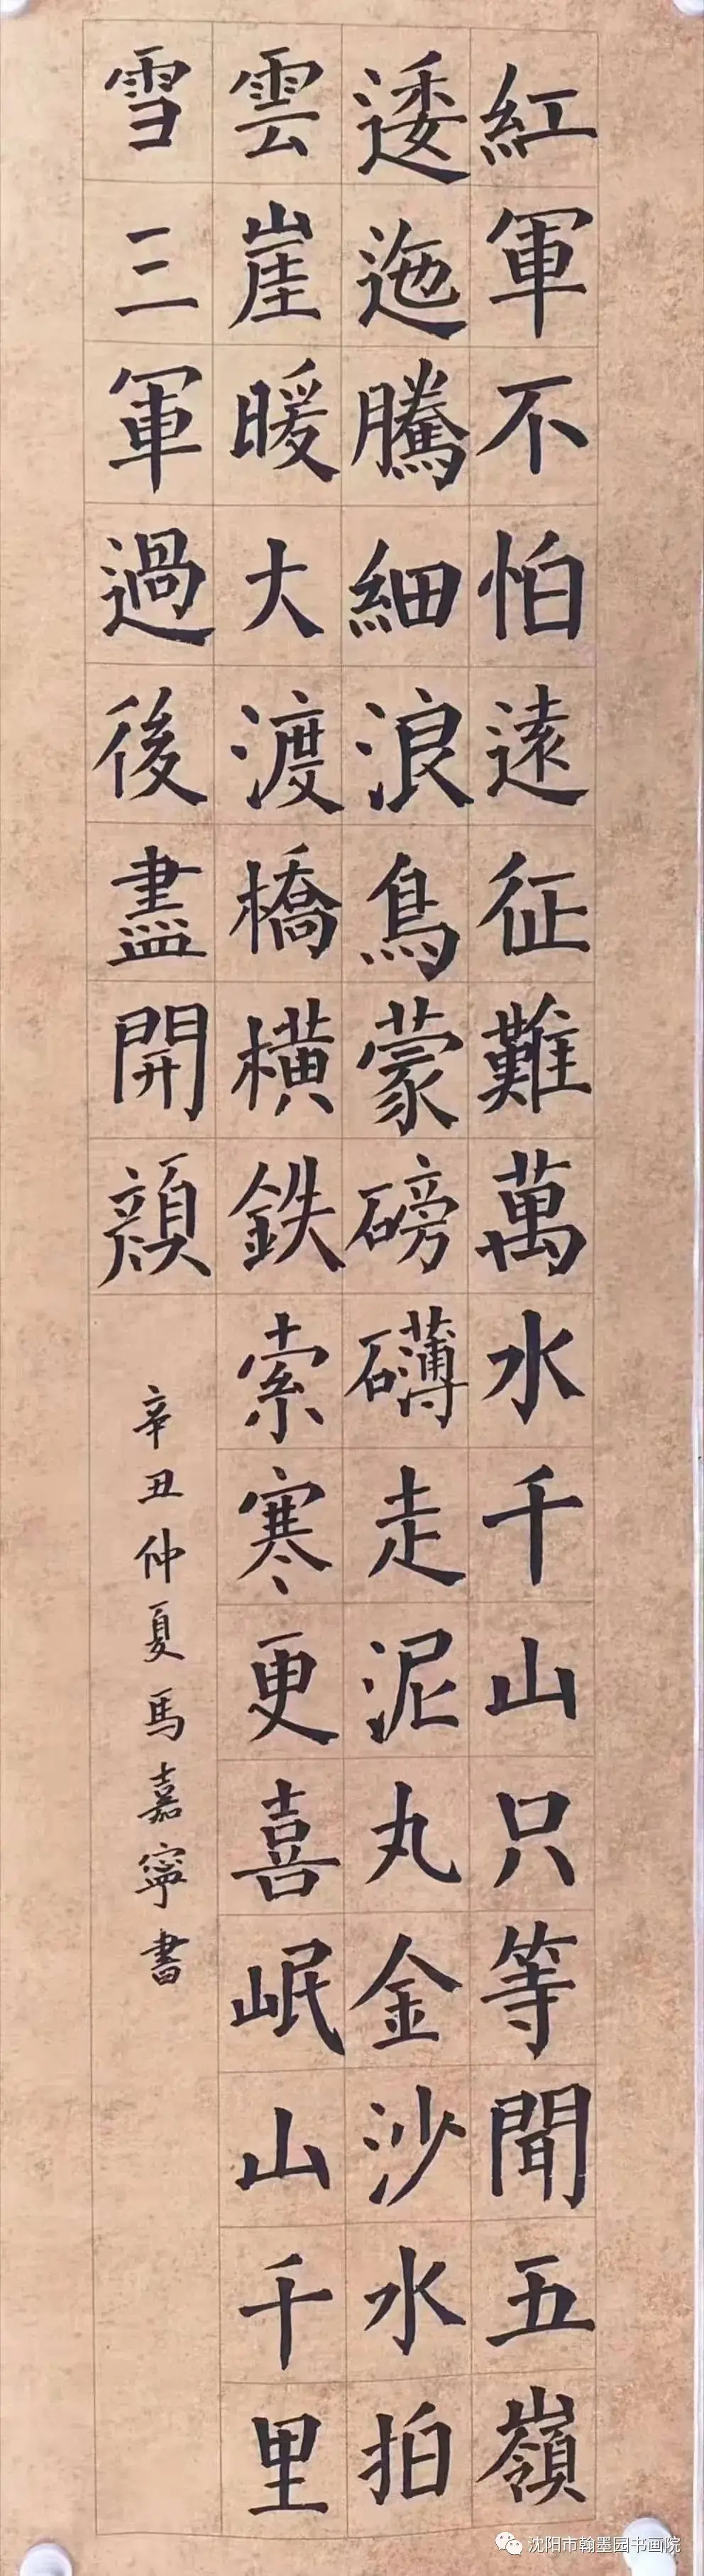 紅軍不怕遠征難萬水千山只等閒五嶺
逶迤騰細浪烏蒙磅礴走泥丸金沙水拍
雲崖暖大渡橋橫鉄索寒更喜岷山千里
雪三軍過後盡開顏
辛丑仲夏馬嘉寧書
沈阳市翰墨园书画院